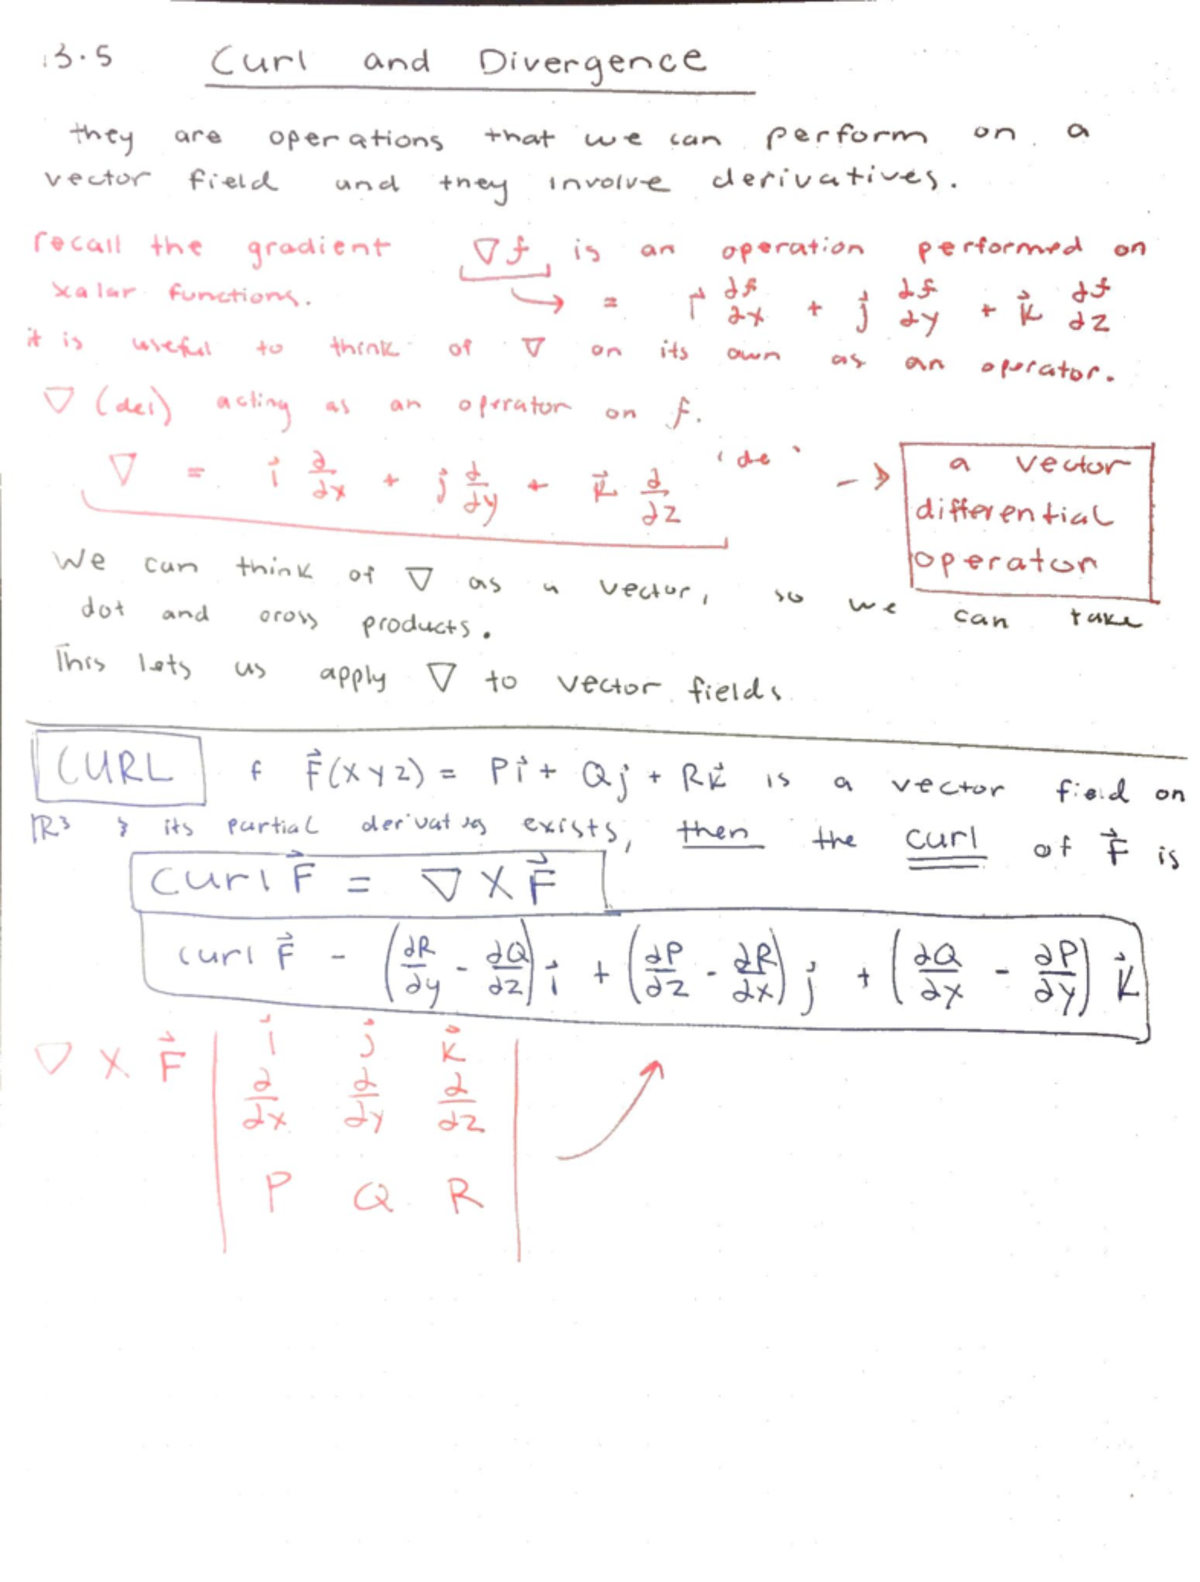 13.5 Curl and Divergence
they are operations that we can perform on a
vector field and they involve derivatives.
recall the gradient ∇f is an operation performed on
scalar functions. → = i⃗ ∂f/∂x + j⃗ ∂f/∂y + k⃗ ∂f/∂z
it is useful to think of ∇ on its own as an operator.
∇ (del) acting as an operator on f.
∇ = i⃗ ∂/∂x + j⃗ ∂/∂y + k⃗ ∂/∂z 'de' → a vector
differential
operator
We can think of ∇ as a vector, so we can take
dot and cross products.
This lets us apply ∇ to vector fields
CURL f F⃗(x y z) = Pi⃗ + Qj⃗ + Rk⃗ is a vector field on
ℝ³ & its partial derivatives exists, then the curl of F⃗ is
Curl F⃗ = ∇ × F⃗
curl F⃗ - (∂R/∂y - ∂Q/∂z) i⃗ + (∂P/∂z - ∂R/∂x) j⃗ + (∂Q/∂x - ∂P/∂y) k⃗
∇ × F⃗ | i⃗ j⃗ k⃗ |
| ∂/∂x ∂/∂y ∂/∂z |
| P Q R |